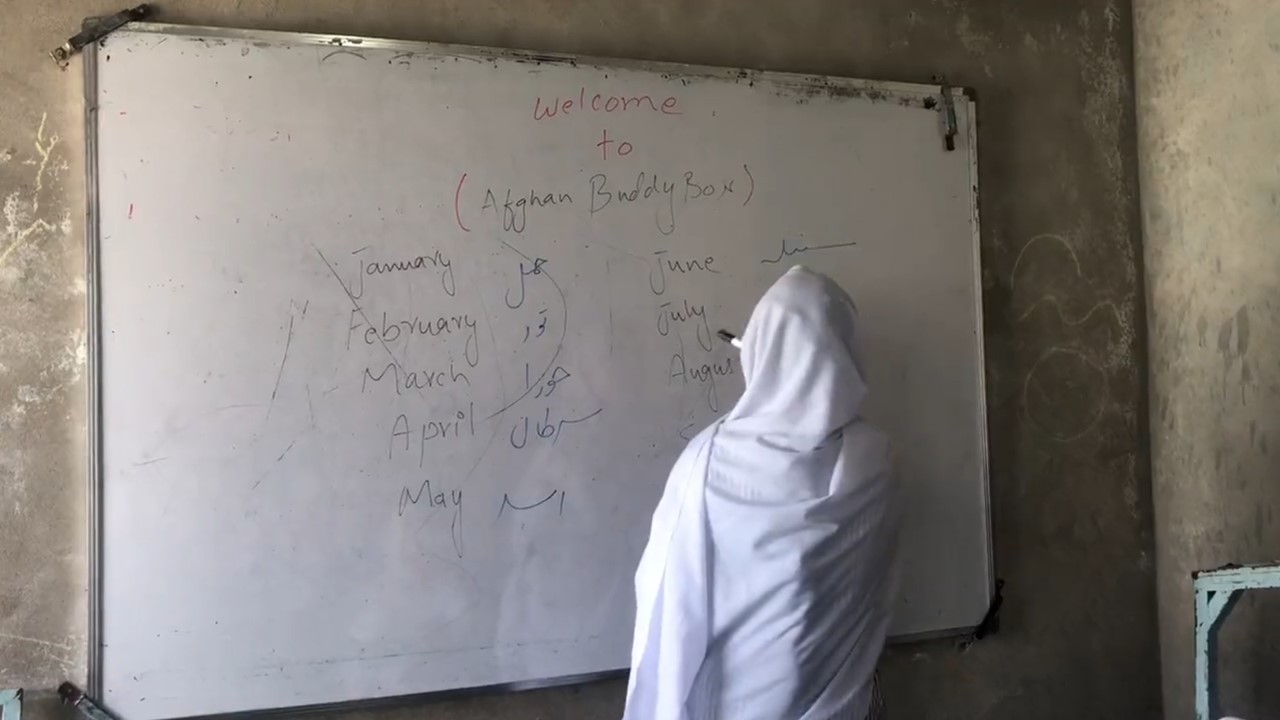 Welcome
to
(Afghan Buddy Box)
January حمل
February ثور
March جوزا
April سرطان
May اسد
June سنبله
July
Augus